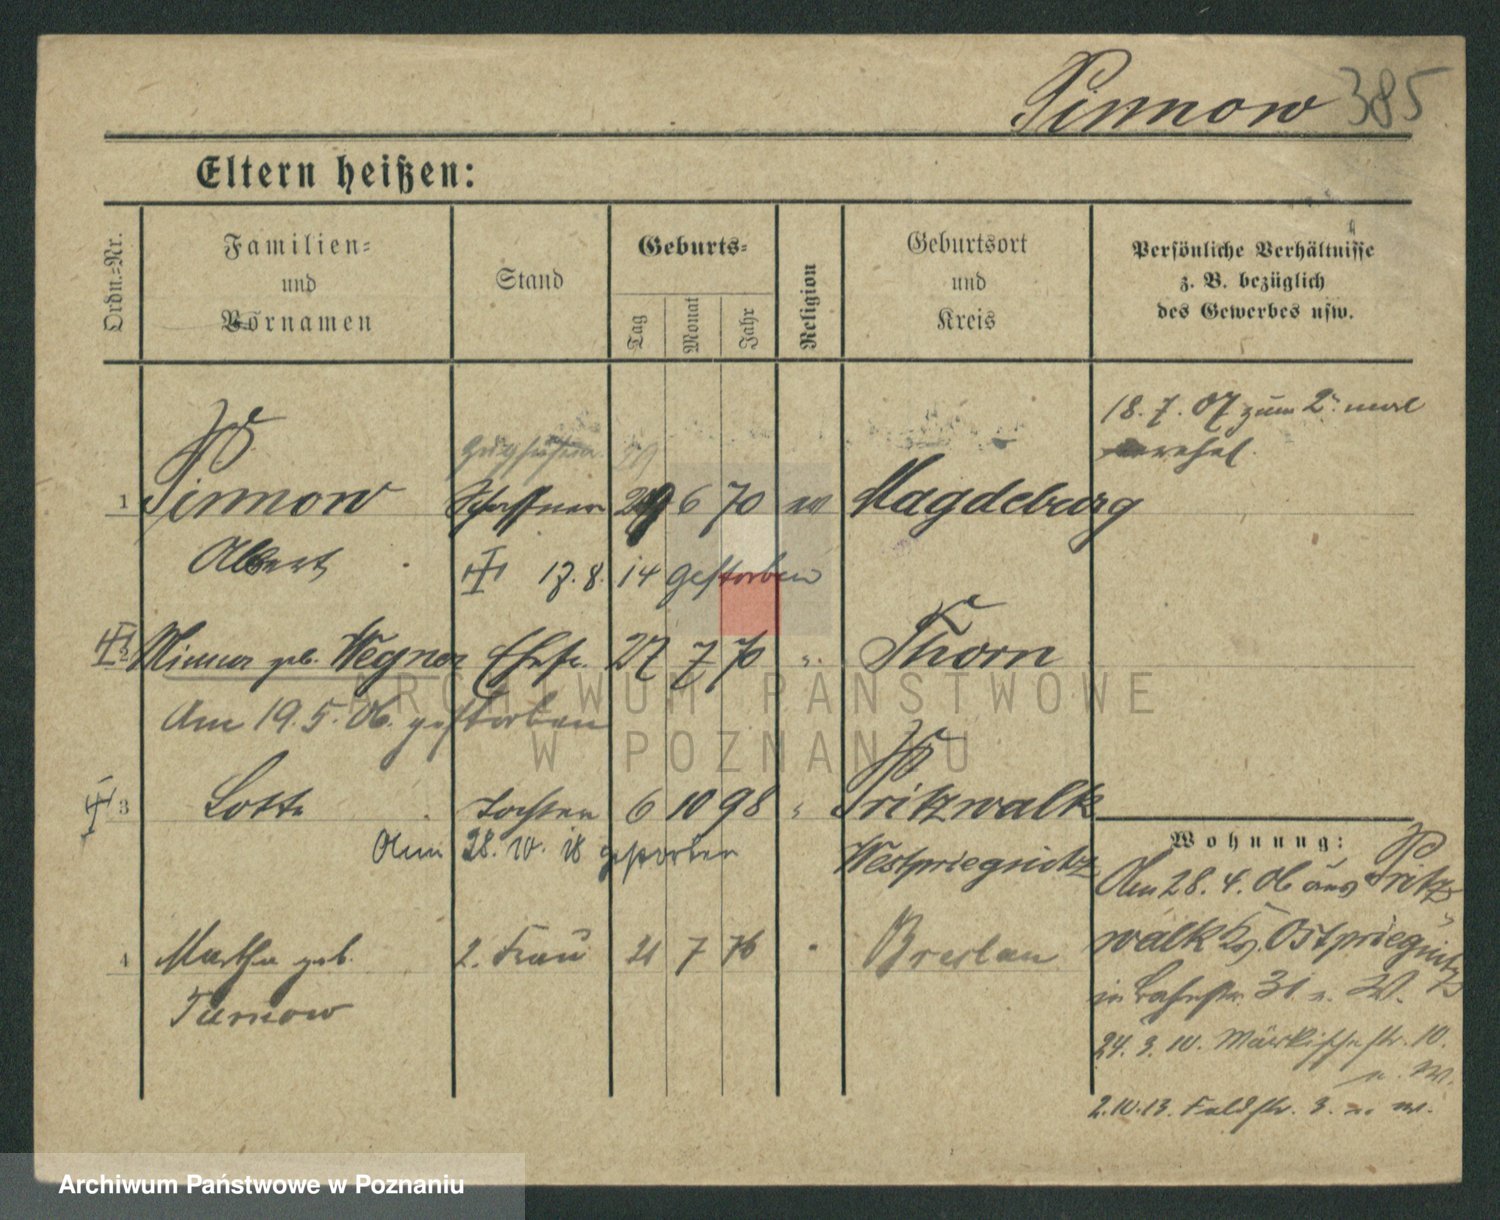 Pinnow 385
Eltern heißen:
Ordn.-Nr.
Familien-
und
Vornamen
Stand
Geburts-
Tag
Monat
Jahr
Religion
Geburtsort
und
Kreis
Persönliche Verhältnisse
z. B. bezüglich
des Gewerbes usw.
18. 7. 07 zum 2. mal
verehel.
Zugführer
1 Pinnow Schaffner 29 6 70 ev Magdeburg
Albert 17. 8. 14 gestorben
2 Minna geb. Wegner Ehefr. 27 7 70 " Thorn
Am 19. 5. 06. gestorben
3 Lotte Tochter 6 10 98 " Pritzwalk
Am 28. 10. 18 gestorben Westpriegnitz
4 Martha geb. 2. Frau 21 7 76 " Breslau
Turnow
Wohnung:
Am 28. 4. 06 aus Pritz-
walk Kr. Ostpriegnitz
in Bahnstr. 31 n. W.
24. 3. 10. Märkischestr. 10.
n. W.
2.10.13. Feldstr. 3. n. W.
ARCHIWUM PAŃSTWOWE
W POZNANIU
Archiwum Państwowe w Poznaniu